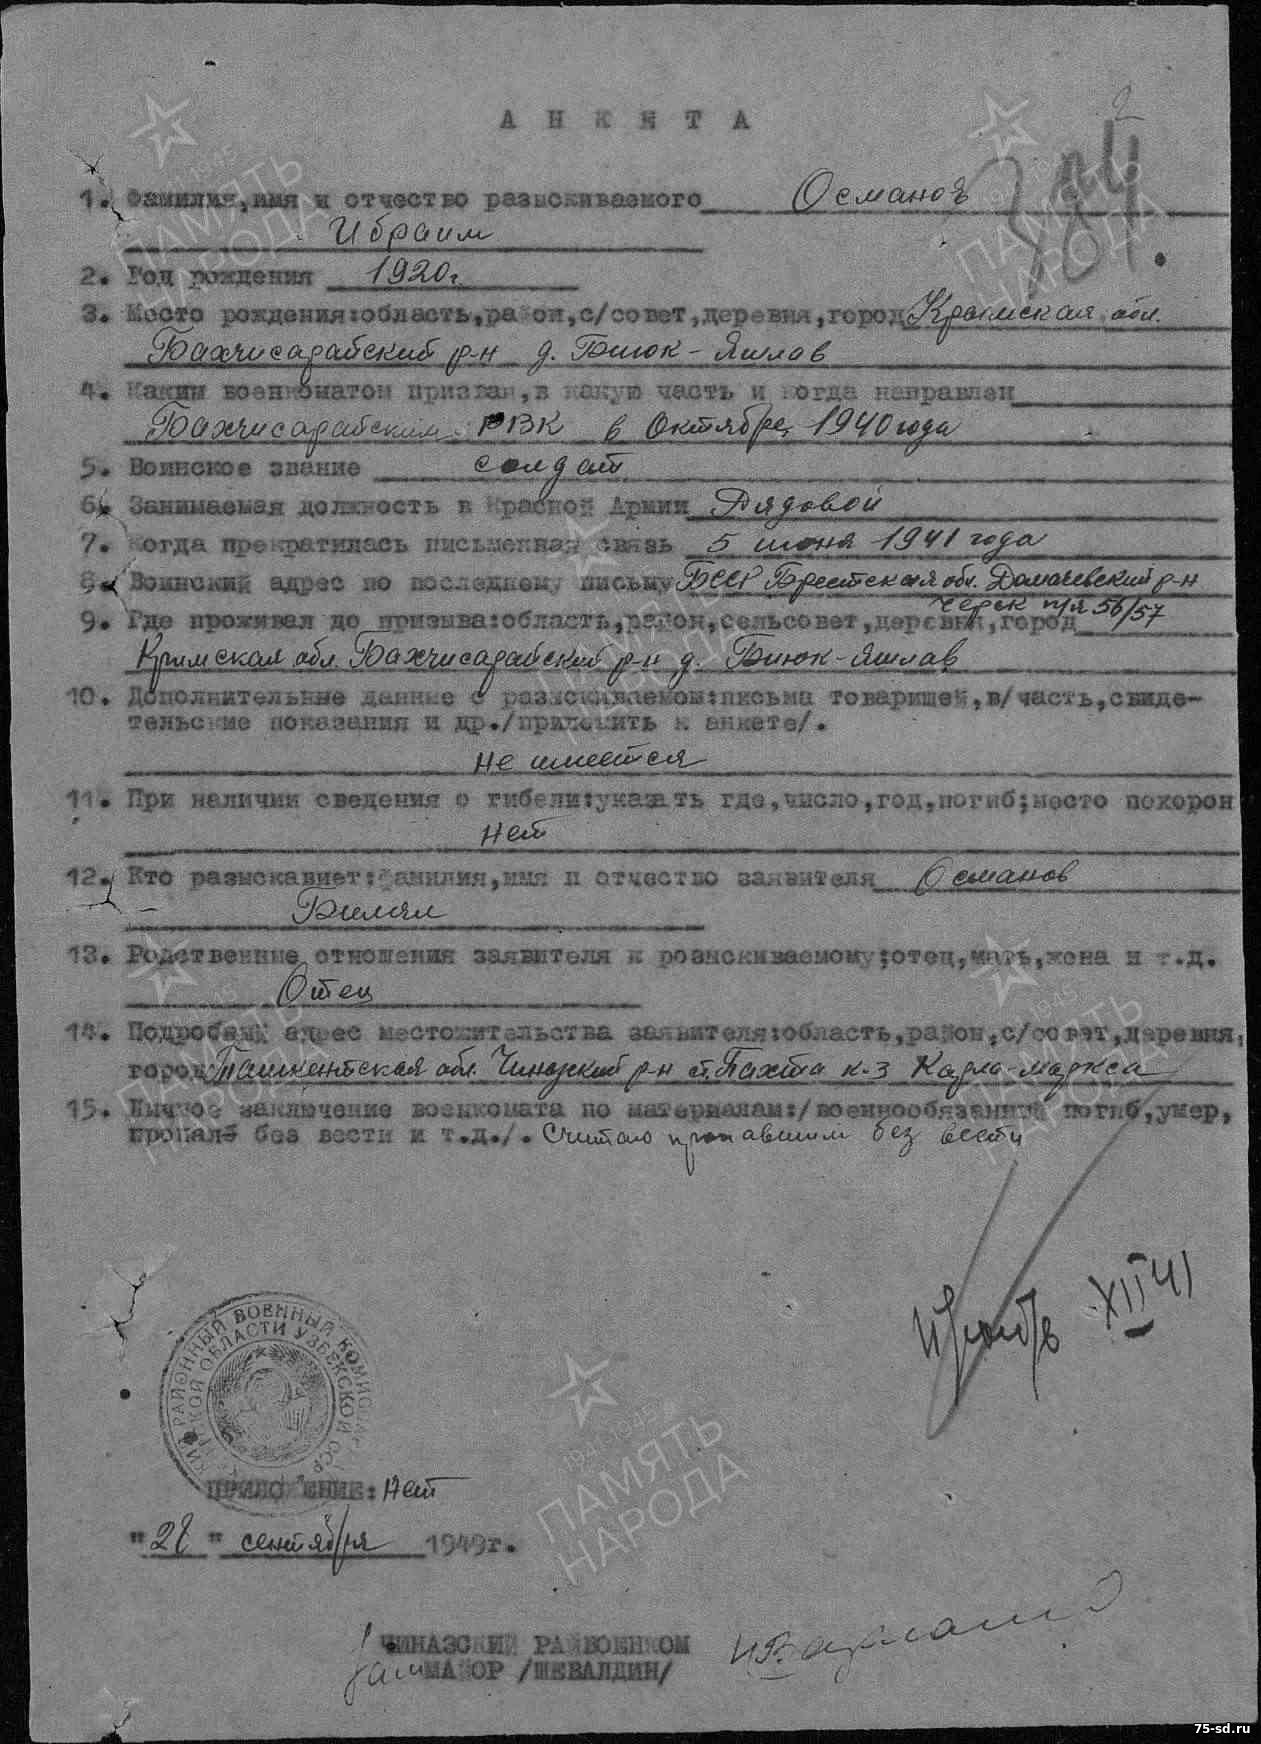 2
384.
АНКЕТА
1. Фамилия,имя и отчество разыскиваемого Османов
Ибраим
2. Год рождения 1920г.
3. Место рождения:область,район,с/совет,деревня,город Крымская обл.
Бахчисарайский р-н д. Биюк-Яшлав
4. Каким военкоматом призван,в какую часть и когда направлен
Бахчисарайским РВК в Октябре 1940 года
5. Воинское звание солдат
6. Занимаемая должность в Красной Армии Рядовой
7. Когда прекратилась письменная связь 5 июня 1941 года
8. Воинский адрес по последнему письму БССР Брестская обл. Домачевский р-н
черск п/я 56/57
9. Где проживал до призыва:область,район,сельсовет,деревня,город
Крымская обл. Бахчисарайский р-н д. Биюк-Яшлав
10. Дополнительные данные о разыскиваемом:письма товарищей,в/часть,свиде-
тельские показания и др./приложить к анкете/.
не имеется
11. При наличии сведения о гибели:указать где,число,год,погиб;место похорон
нет
12. Кто разыскивает:фамилия,имя и отчество заявителя Османов
Билял
13. Родственные отношения заявителя к розыскиваемому;отец,мать,жена и т.д.
Отец
14. Подробный адрес местожительства заявителя:область,район,с/совет,деревня,
город Ташкентская обл. Чиназский р-н ст. Пахта к-з Карла-Маркса
15. Личное заключение военкомата по материалам:/военнообязанный погиб,умер,
пропал без вести и т.д./. Считаю пропавшим без вести
XII 41
РАЙОННЫЙ ВОЕННЫЙ КОМИС
ОБЛАСТИ УЗБЕКСКОЙ ССР
ПРИЛОЖЕНИЕ: Нет
"28" сентября 1949г.
ЧИНАЗСКИЙ РАЙВОЕНКОМ
МАЙОР /ШЕВАЛДИН/
1941-1945
ПАМЯТЬ
НАРОДА
75-sd.ru